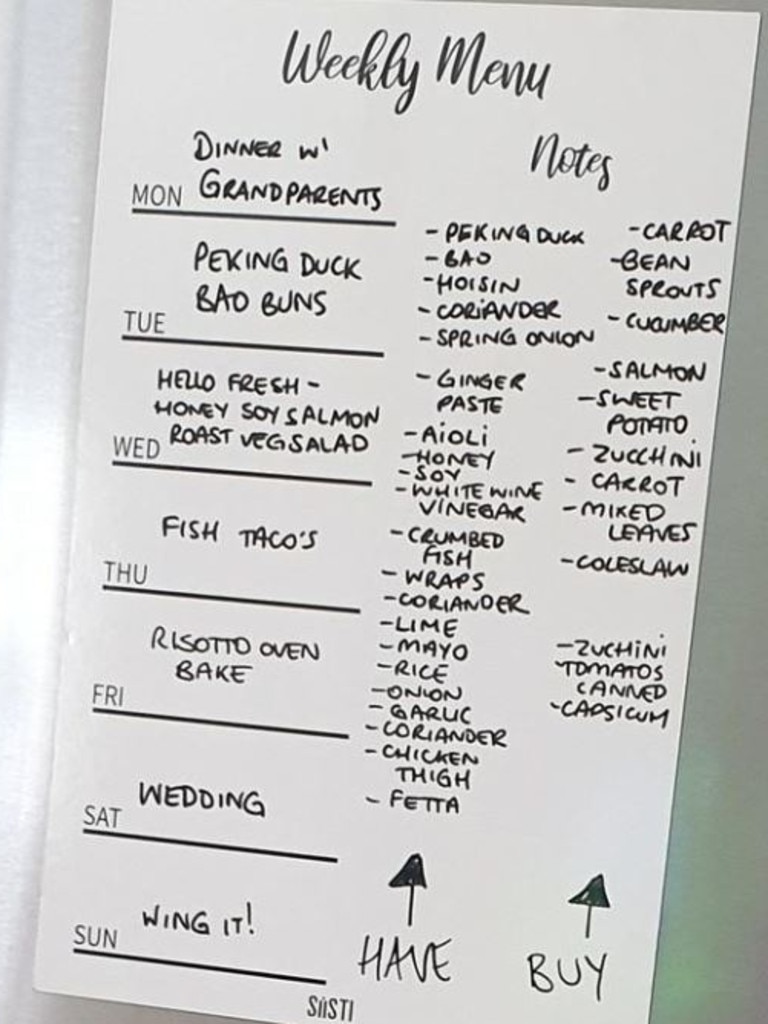 Weekly Menu
DINNER W'
MON GRANDPARENTS
PEKING DUCK
BAO BUNS
TUE
HELLO FRESH -
HONEY SOY SALMON
WED ROAST VEG SALAD
FISH TACO'S
THU
RISOTTO OVEN
BAKE
FRI
WEDDING
SAT
WING IT!
SUN
Notes
- PEKING DUCK
- BAO
- HOISIN
- CORIANDER
- SPRING ONION
- GINGER
PASTE
- AIOLI
- HONEY
- SOY
- WHITE WINE
VINEGAR
- CRUMBED
FISH
- WRAPS
- CORIANDER
- LIME
- MAYO
- RICE
- ONION
- GARLIC
- CORIANDER
- CHICKEN
THIGH
- FETTA
HAVE
- CARROT
- BEAN
SPROUTS
- CUCUMBER
- SALMON
- SWEET
POTATO
- ZUCCHINI
- CARROT
- MIXED
LEAVES
- COLESLAW
- ZUCHINI
TOMATOS
CANNED
- CAPSICUM
BUY
SiiSTI